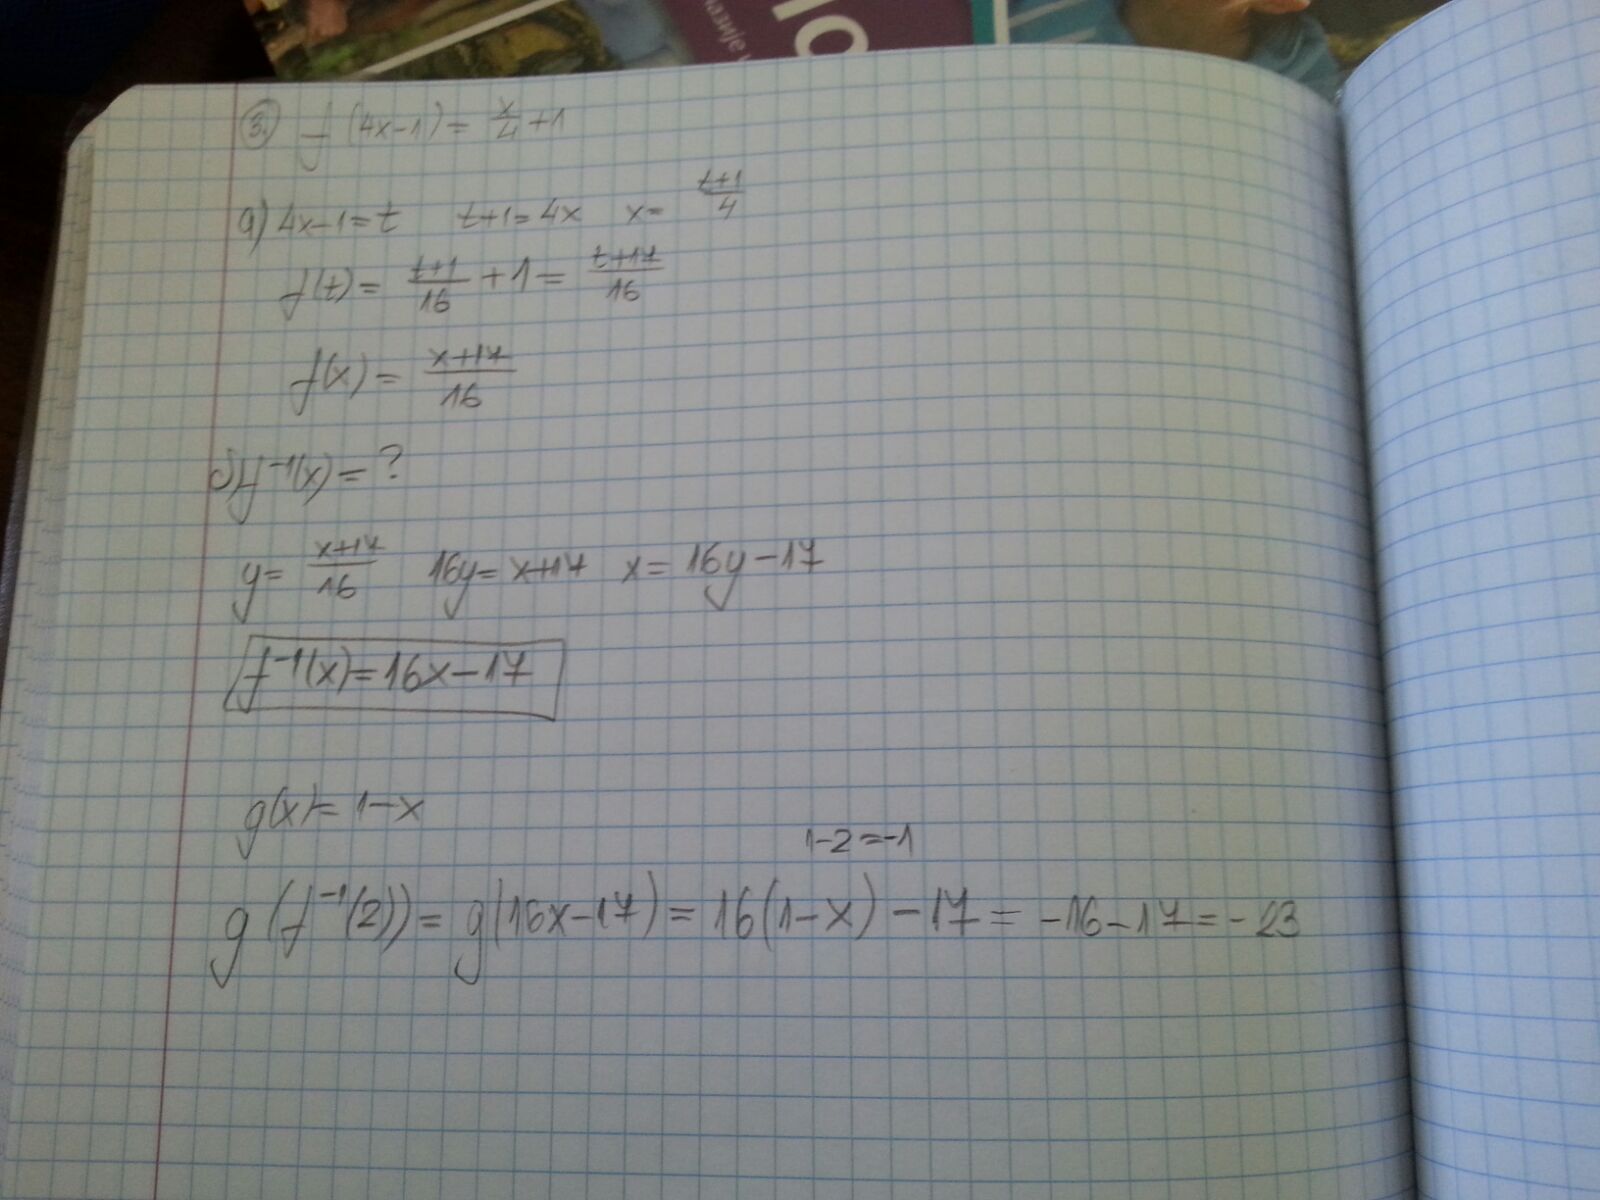 назије
10
3. f(4x-1) = x/4 + 1
a) 4x-1=t t+1=4x x= t+1/4
f(t) = t+1/16 + 1 = t+17/16
f(x) = x+17/16
б) f⁻¹(x) = ?
y= x+17/16 16y=x+17 x=16y-17
f⁻¹(x)=16x-17
g(x)=1-x
1-2=-1
g(f⁻¹(2)) = g(16x-17) = 16(1-x) -17 = -16-17=-23